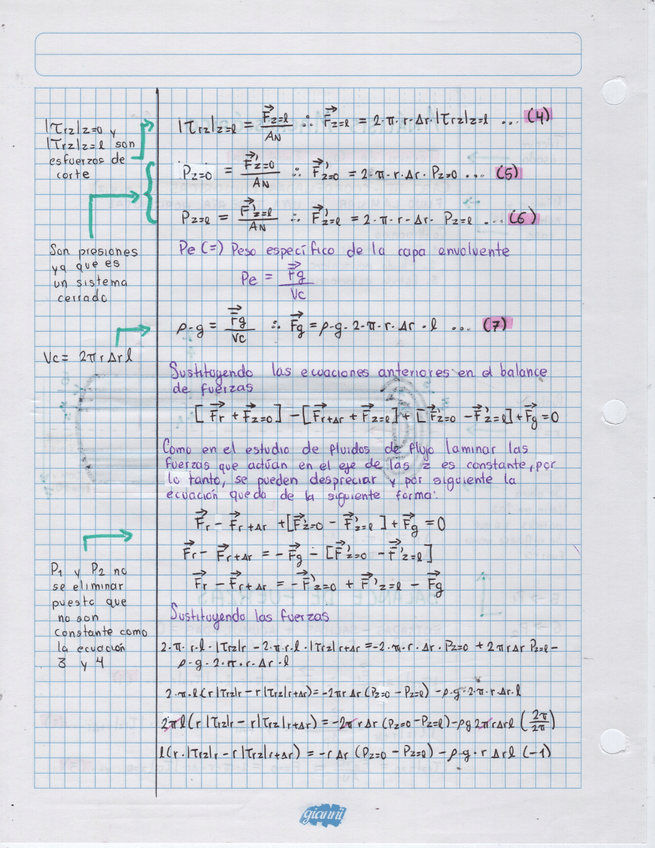 |τrz|z=0 y
|τrz|z=l son
esfuerzos de
corte
|τrz|z=l = F⃗z=l / AN ∴ F⃗z=l = 2·π·r·Δr·|τrz|z=l ... (4)
Pz=0 = F⃗'z=0 / AN ∴ F⃗'z=0 = 2·π·r·Δr· Pz=0 ... (5)
Pz=l = F⃗'z=l / AN ∴ F⃗'z=l = 2·π·r·Δr· Pz=l ... (6)
Son presiones
ya que es
un sistema
cerrado
Pe (=) Peso específico de la capa envolvente
Pe = F⃗g / Vc
ρ·g = F⃗g / Vc ∴ F⃗g = ρ·g·2·π·r·Δr·l ... (7)
Vc = 2πrΔrl
Sustituyendo las ecuaciones anteriores en el balance
de fuerzas
[F⃗r + F⃗z=0] − [F⃗r+Δr + F⃗z=l] + [F⃗'z=0 − F⃗'z=l] + F⃗g = 0
Como en el estudio de fluidos de flujo laminar las
fuerzas que actúan en el eje de las z es constante, por
lo tanto, se pueden despreciar y por siguiente la
ecuación queda de la siguiente forma:
F⃗r − F⃗r+Δr + [F⃗'z=0 − F⃗'z=l] + F⃗g = 0
F⃗r − F⃗r+Δr = −F⃗g − [F⃗'z=0 − F⃗'z=l]
F⃗r − F⃗r+Δr = −F⃗'z=0 + F⃗'z=l − F⃗g
P1 y P2 no
se eliminar
puesto que
no son
constante como
la ecuación
3 y 4
Sustituyendo las fuerzas
2·π·r·l·|τrz|r − 2·π·r·l·|τrz|r+Δr = −2·π·r·Δr·Pz=0 + 2πrΔr Pz=l −
ρ·g·2·π·r·Δr·l
2·π·l(r|τrz|r − r|τrz|r+Δr) = −2πrΔr (Pz=0 − Pz=l) − ρ·g·2·π·r·Δr·l
2πl(r|τrz|r − r|τrz|r+Δr) = −2πrΔr (Pz=0 − Pz=l) − ρg2πrΔrl (2π/2π)
l(r·|τrz|r − r|τrz|r+Δr) = −rΔr (Pz=0 − Pz=l) − ρ·g·rΔrl (−1)
gianni